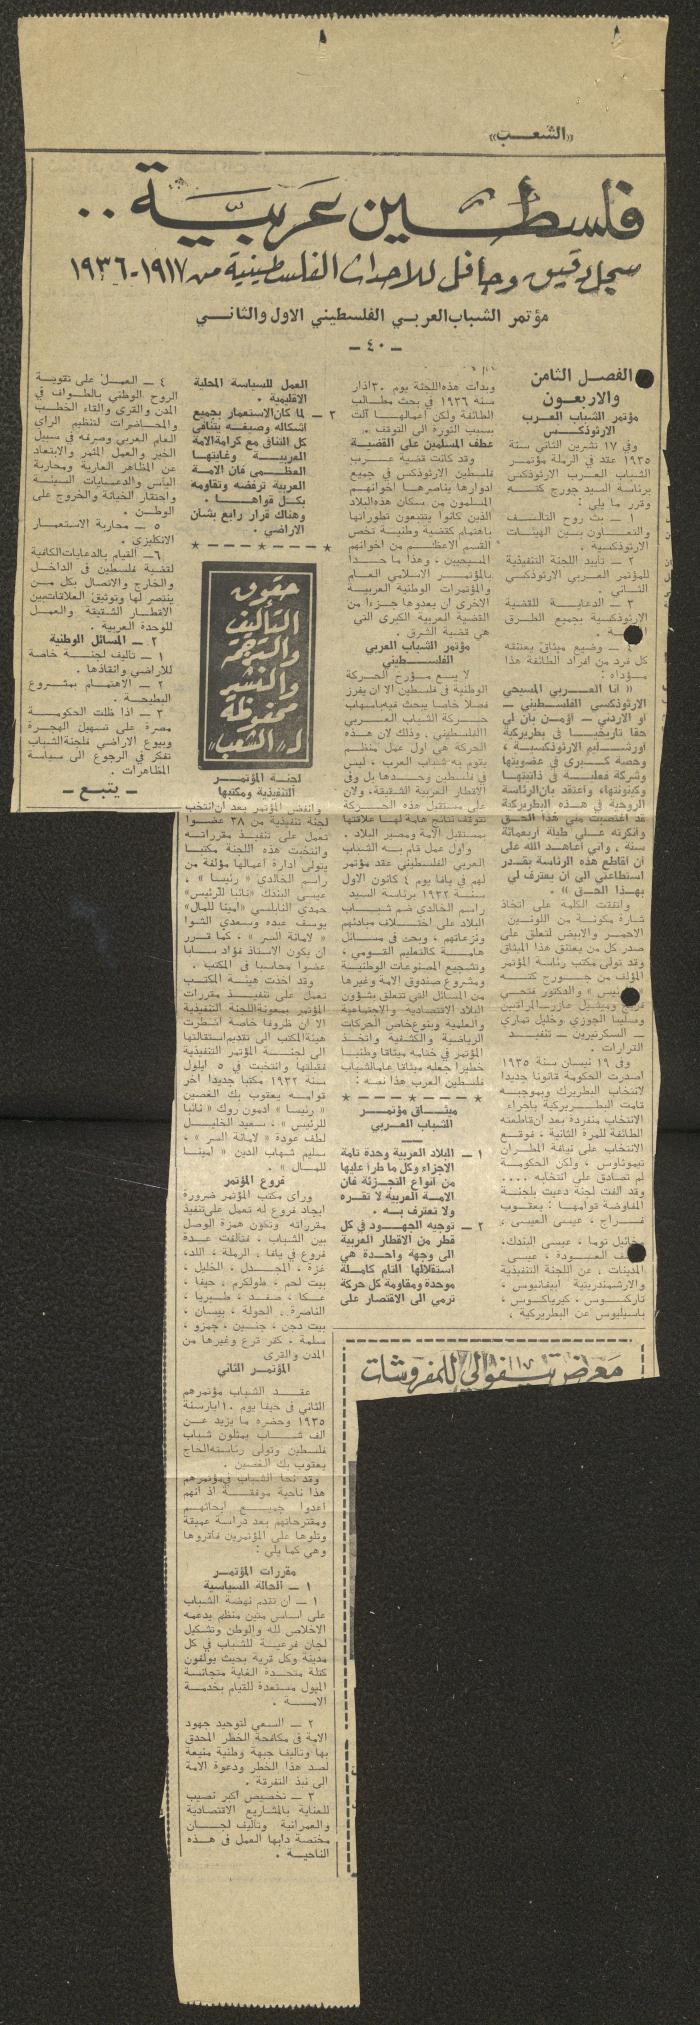 «الشعـــب»
فلسطـــين عربيـــة ..
سجل دقيق وحافل للاحداث الفلسطينية من ١٩١٧-١٩٣٦
مؤتمر الشباب العربي الفلسطيني الاول والثانـــي
ــ ٤٠ ــ
الفصل الثامن
والاربعـــون
مؤتمر الشباب العرب
الارثوذكـــس
وفي ١٧ تشرين الثاني سنة
١٩٣٥ عقد في الرملة مؤتمر
الشباب العرب الارثوذكسي
برئاسة السيد جورج كتـــه
وقرر ما يلي :
١ ــ بث روح التآلـــف
والتعـــاون بين الهيئات
الارثوذكسية .
٢ ــ تأييد اللجنة التنفيذية
للمؤتمر العربي الارثوذكسي
الثاني .
٣ ــ الدعاية للقضية
الارثوذكسية بجميع الطرق
٤ ــ وضع ميثاق يعتنقه
كل فرد من افراد الطائفة هذا
مؤداه :
« انا العـــربي المسيحي
الارثوذكسي الفلسطيني ــ
او الاردني ــ أؤمن بان لي
حقا تاريخيـــا في بطريركية
اورشـــليم الارثوذكسية ،
وحصة كـــبرى في عضويتها
وشركة فعليـــة في ذاتيتها
وكينونتها، وأعتقد بان الرئاسة
الروحية في هـــذه البطريركية
قد اغتصبت مني هذا الحق
وانكرته علـــي طيلة اربعمائة
سنة ، واني اعاهد الله على
ان اقاطع هذه الرئاسة بقـــدر
استطاعتي الى ان يعترف لي
بهـــذا الحـــق » .
واتفقت الكلمة على اتخاذ
شارة مكونـــة من اللونـــين
الاحمر والابيض لتعلق على
صدر كل من يعتنق هذا الميثاق
وقد تولى مكتب رئاسة المؤتمر
المؤلف من جـــورج كتـــه
« رئيس » والدكتور فتحـــي
وسليما الجوزي وخليل تماري
ــ السكرتيرين ــ تنفيـــذ
القرارات .
وفي ١٩ نيسان سنة ١٩٣٥
اصدرت الحكومة قانونا جديدا
لانتخاب البطريرك وبموجبـــه
قامت البطـــريركية باجراء
الانتخاب منفردة بعد ان قاطعته
الطائفة للمرة الثانية ، فوقـــع
الانتخاب على نيافة المطـــران
تيموثاوس ، ولكن الحكومـــة
لم تصادق على انتخابه ....
وقد الفت لجنة دعيت بلجنـــة
المفاوضة قوامهـــا : يعقـــوب
فـــراج ، عيسى العيسى ،
توما ، عيسى البندك،
العبـــودة ، عيسى
عن اللجنة التنفيذية
والارشمندريتية
تاركـــوس ، كيرياكـــوس ،
باسيليوس عن البطريركية ،
وبدأت هذه اللجنة يوم ٣٠ اذار
سنة ١٩٣٦ في بحث مطـــالب
الطائفة ولكن اعمالهـــا آلت
بسبب الثورة الى التوقف .
عطف المسلمين على القضيـــة
وقد كانت قضية عـــرب
فلسطين الارثوذكس في جميع
ادوارها يناصرها اخوانهـــم
المسلمون من سكان هذه البلاد
الذين كانوا يتتبعون تطوراتها
باهتمام كقضية وطنيـــة تخص
القسم الاعظـــم من اخوانهم
المسيحيين ، وهذا ما حـــدا
بالمؤتمـــر الاسلامي العـــام
والمؤتمرات الوطنية العربيـــة
الاخرى ان يعدوها جـــزءا من
القضية العربية الكبرى التي
هي قضية الشرق .
مؤتمر الشباب العربي
الفلسـطيني
لا يسـع مـــؤرخ الحركـــة
الوطنية في فلسطين الا ان يفرز
فصلا خاصا يبحث فيه باسهاب
حـــركة الشباب العـــربي
الفلسطيني ، وذلك لان هـــذه
الحركة هي اول عمل منظـــم
يقوم به شباب العرب ، ليس
في فلسطين وحـــدها بل وفي
الاقطار العربية الشقيقة، ولان
على مستقبل هذه الحركـــة
تتوقف نتائج هامة لهـــا علاقتها
بمستقبل الامة ومصير البلاد .
واول عمل قام به الشباب
العربي الفلسطيني عقد مؤتمر
لهم في يافا يوم ٤ كانون الاول
سنـــة ١٩٣٢ برئاسة السيد
راسم الخالدي ضم شبـــاب
البلاد على اختـــلاف مبادئهم
ونزعاتهم ، وبحث في مسـائل
هامـــة كالتعليم القومـــي ،
وتشجيع المصنوعات الوطنيـــة
ومشروع صندوق الامة وغيرها
من المسائل التي تتعلق بشؤون
البلاد الاقتصادية والاجتماعية
والعلمية وبنوع خاص الحركات
الرياضية والكشفية واتخـــذ
المؤتمر في ختامه ميثاقا وطنيـــا
خطيرا جعله ميثاقا عاما لشباب
فلسطين العرب هذا نصه :
ميثـــاق مؤتمـــر
الشباب العـــربي
١ ــ البلاد العربية وحدة تامة
الاجزاء وكل ما طرأ عليها
من انواع التجـــزئة فان
الامـــة العربية لا تقـــره
ولا تعترف بـــه .
٢ ــ توجيه الجهـــود في كل
قطر من الاقطار العربية
الى وجهة واحـــدة هي
استقلالها التام كاملـــة
موحدة ومقاومة كل حركة
ترمي الى الاقتصار على
العمل للسياسة المحلية
الاقليمية .
٣ ــ لما كان الاستعمار بجميع
اشكاله وصيغـــه يتنافى
كل التنافي مع كرامة الامة
العربيـــة وغايتهـــا
العظمى فان الامـــة
العربية ترفضه وتقاومه
بكـــل قواهـــا .
وهناك قرار رابع بشأن
الاراضي .
حقوق
التأليف
والترجمة
والنشر
محفوظة
لـ «الشعب»
لجنـة المؤتمـــر
التنفيذية ومكتبها
وانفض المؤتمر بعد ان انتخب
لجنة تنفيذية من ٣٨ عضـــوا
تعمل على تنفيـــذ مقرراتـــه
وانتخبت هذه اللجنة مكتبـــا
يتولى ادارة اعمالها مؤلفة من
راسم الخالدي « رئيسا » ،
عيسى البندك «نائبا للرئيس»
حمدي النابلسي «امينا للمال»
يوسف عبده وسعدي الشوا
« لامانة السر » ، كما تقـــرر
ان يكون الاستاذ فؤاد سـابا
عضوا محاسبا في المكتب .
وقد اخذت هيئـــة المكتـــب
تعمل على تنفيـــذ مقررات
المؤتمر بمعونة اللجنة التنفيذية
الا ان ظروفا خاصة اضطرت
هيئة المكتب الى تقديم استقالتها
الى لجنـــة المؤتمر التنفيذية
فقبلتها وانتخبت في ٥ ايلول
سنة ١٩٣٣ مكتبا جديدا آخر
قوامه يعقوب بك الغصين
« رئيسا » ادمون روك « نائبا
للرئيس » ، سعيد الخليـــل
لطف عودة « لامانة السر » ،
سليم شهاب الدين « امينـــا
للمـــال » .
فروع المؤتمر
ورأى مكتب المؤتمر ضرورة
ايجاد فروع له تعمل على تنفيذ
مقرراته وتكون همزة الوصل
بين الشباب ، فتألفت عـــدة
فروع في يافا ، الرملة ، اللد،
غزة ، المجـــدل ، الخليل ،
بيت لحم ، طولكرم ، حيفا ،
عكـــا ، صفـــد ، طبـــريا ،
الناصرة ، الحولة ، بيسان ،
بيت دجن ، جنـــين ، جمزو ،
سلمة ، كفر ترع وغيرها من
المدن والقرى
المؤتمـــر الثاني
عقـــد الشباب مؤتمرهم
الثاني في حيفا يوم ١٠ ايار سنة
١٩٣٥ وحضره ما يزيد عـــن
الف شـــاب يمثلون شباب
فلسطين وتولى رئاسته الحاج
يعقوب بك الغصين .
وقد نحا الشباب في مؤتمرهم
هذا ناحية موفقـــة اذ انهم
اعدوا جميـــع ابحاثهـــم
ومقترحاتهم بعد دراسة عميقة
وتلوها على المؤتمرين فأقروها
وهي كما يلي :
مقررات المؤتمـــر
١ ــ الحالة السياسية
١ ــ ان تقدم نهضة الشباب
على اساس متين منظم يدعمه
الاخلاص لله والوطن وتشكيل
لجان فرعيـــة للشباب في كل
مدينة وكل قرية بحيث يؤلفون
كتلة متحـــدة الغاية متجانسة
الميول مستعدة للقيام بخدمـــة
الامـــة .
٢ ــ السعي لتوحيد جهود
الامة في مكافحة الخطر المحدق
بها وتأليف جبهة وطنية منيعة
لصد هذا الخطر ودعوة الامة
الى نبذ التفرقة .
٣ ــ تخصيص اكبر نصيب
للعناية بالمشاريع الاقتصادية
والعمرانية وتأليف لجـــان
مختصة دأبها العمل في هـــذه
الناحيـــة .
٤ ــ العمـــل على تقويـــة
الروح الوطني بالطـــواف في
المدن والقرى والقاء الخطـــب
والمحـــاضرات لتنظيم الرأي
العام العربي وصرفه في سبيل
الخير والعمل المثمر والابتعاد
عن المظاهر العارية ومحاربة
اليأس والدعـــايات السيئـــة
واحتقار الخيانة والخروج على
الوطـــن .
٥ ــ محاربة الاستعمـــار
الانكليزي .
٦ ــ القيام بالدعايات الكافية
لقضية فلسطين في الداخـــل
والخارج والاتصال بكل مـــن
ينتصر لها وتوثيق العلاقات بين
الاقطار الشقيقة والعمـــل
للوحدة العربية .
٢ ــ المسائل الوطنية
١ ــ تأليف لجنـــة خاصة
للاراضي وانقاذها .
٢ ــ الاهتمـــام بمشـــروع
البطيحـــة .
٣ ــ اذا ظلت الحكومـــة
مصرة على تسهيل الهجـــرة
وبيوع الاراضي فلجنة الشباب
تفكر في الرجوع الى سياسة
المظاهرات .
ــ يتبـــع ــ
معرض تـــيفولي للمفروشات